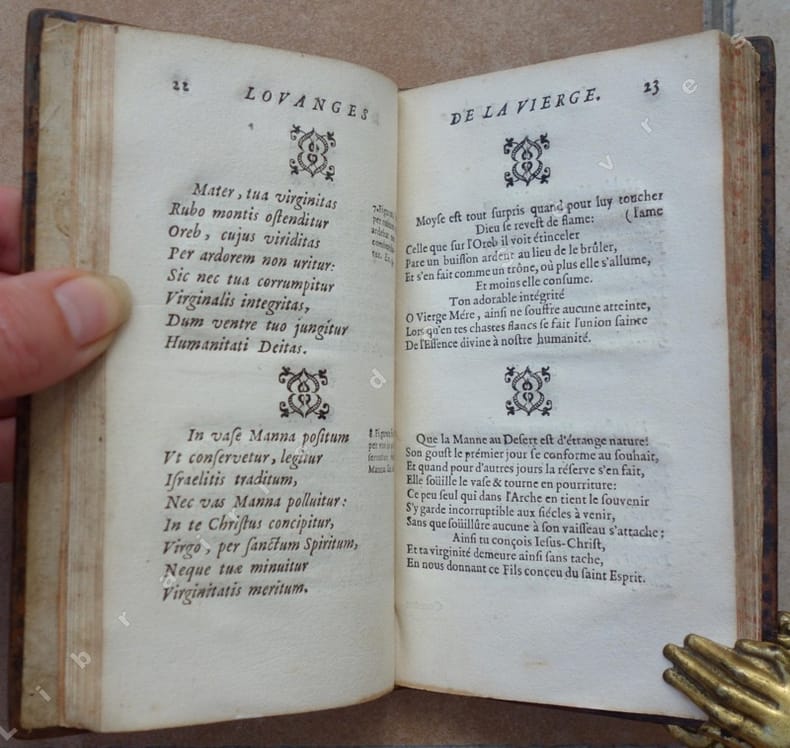 22
LOVANGES
Mater, tua virginitas
Rubo montis oſtenditur
Oreb, cujus viriditas
Per ardorem non uritur:
Sic nec tua corrumpitur
Virginalis integritas,
Dum ventre tuo jungitur
Humanitati Deitas.
In vaſe Manna poſitum
Vt conſervetur, legitur
Iſraelitis traditum,
Nec vas Manna polluitur:
In te Chriſtus concipitur,
Virgo, per ſanctum Spiritum,
Neque tuæ minuitur
Virginitatis meritum.
DE LA VIERGE.
23
Moyſe eſt tout ſurpris quand pour luy toucher
Dieu ſe reveſt de flame: (l'ame
Celle que ſur l'Oreb il voit étinceler
Pare un buiſſon ardent au lieu de le brûler,
Et s'en fait comme un trône, où plus elle s'allume,
Et moins elle conſume.
Ton adorable intégrité
O Vierge Mére, ainſi ne ſouffre aucune atteinte,
Lors qu'en tes chaſtes flancs ſe fait l'union ſainte
De l'Eſſence divine à noſtre humanité.
Que la Manne au Deſert eſt d'étrange nature!
Son gouſt le prémier jour ſe conforme au ſouhait,
Et quand pour d'autres jours la réſerve s'en fait,
Elle ſoüille le vaſe & tourne en pourriture:
Ce peu ſeul qui dans l'Arche en tient le ſouvenir
S'y garde incorruptible aux ſiécles à venir,
Sans que ſoüillûre aucune à ſon vaiſſeau s'attache;
Ainſi tu conçois Ieſus-Chriſt,
Et ta virginité demeure ainſi ſans tache,
En nous donnant ce Fils conçeu du ſaint Eſprit.